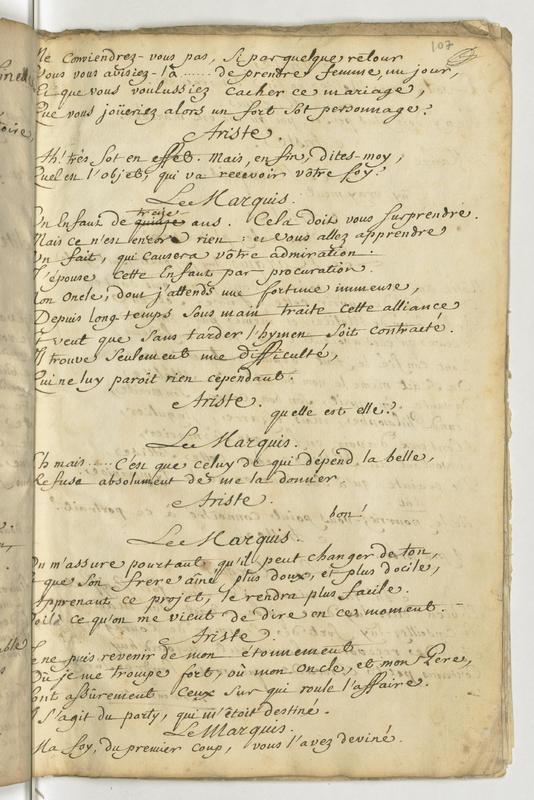 107
Ne Conviendrez-vous pas, Si par quelque retour
Vous vous avisiez-là ...... de prendre femme, un jour,
Et que vous voulussiez Cacher ce mariage,
Que vous joüeriez alors un fort Sot personnage?
Ariste.
Ah! très Sot en effet. Mais, enfin, dites-moy,
Quel est l'objet, qui va recevoir vôtre foy?
Le Marquis.
Un Enfant de quinze treize ans. Cela doit vous surprendre.
Mais ce n'est encore rien: et vous allez apprendre
Un fait, qui causera vôtre admiration.
J'épouse Cette Enfant par procuration.
Mon Oncle, dont j'attends une fortune immense,
Depuis long-temps Sous main traite Cette alliance
Et veut que Sans tarder l'hymen Soit contracté.
Il trouve Seulement une difficulté,
Qui ne luy paroit rien cependant.
Ariste.
quelle est elle?
Le Marquis.
Eh mais..... C'est que Celuy de qui dépend la belle,
Refuse absolument de me la donner.
Ariste.
bon!
Le Marquis.
On m'assure pourtant qu'il peut changer de ton,
Et que Son frere ainé, plus doux, et plus docile,
Apprenant ce projet, le rendra plus facile.
Voilà ce qu'on me vient de dire en ce moment.
Ariste.
Je ne puis revenir de mon étonnement.
Ou je me trompe fort, où mon Oncle, et mon Pere,
Sont assûrement Ceux Sur qui roule l'affaire.
Il S'agit du party, qui m'étoit destiné.
Le Marquis.
Ma foy, du premier Coup, vous l'avez deviné.